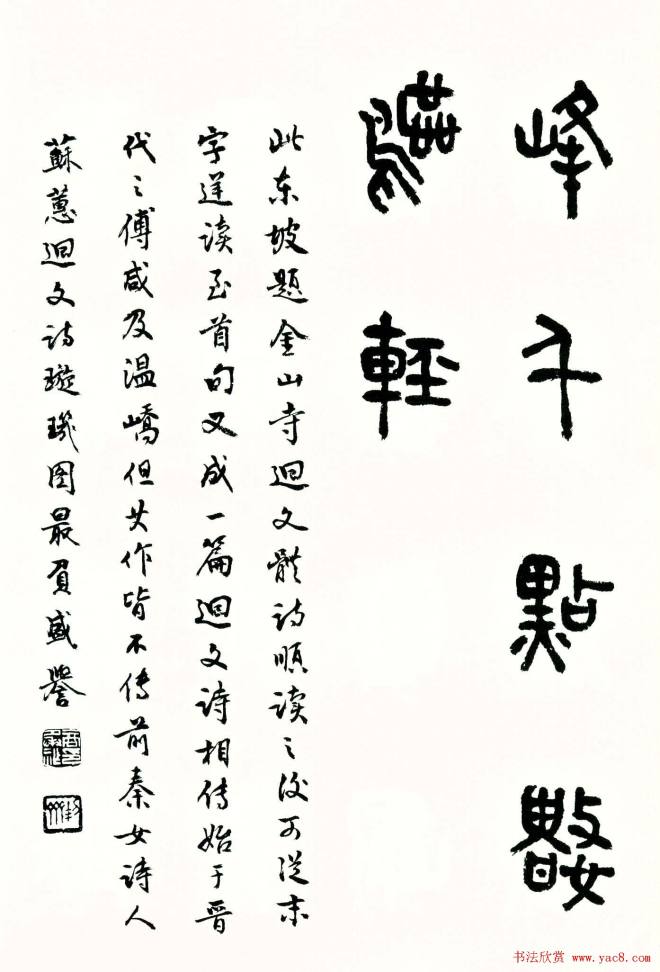 峰千點數
鷗輕
此东坡题金山寺迴文體诗順读之后可从末
字逆读至首句又成一篇迴文诗相传始于晋
代之傅咸及温嶠但其作皆不传前秦女诗人
蘇蕙迴文诗璇璣图最負盛譽
书法欣赏 www.yac8.com